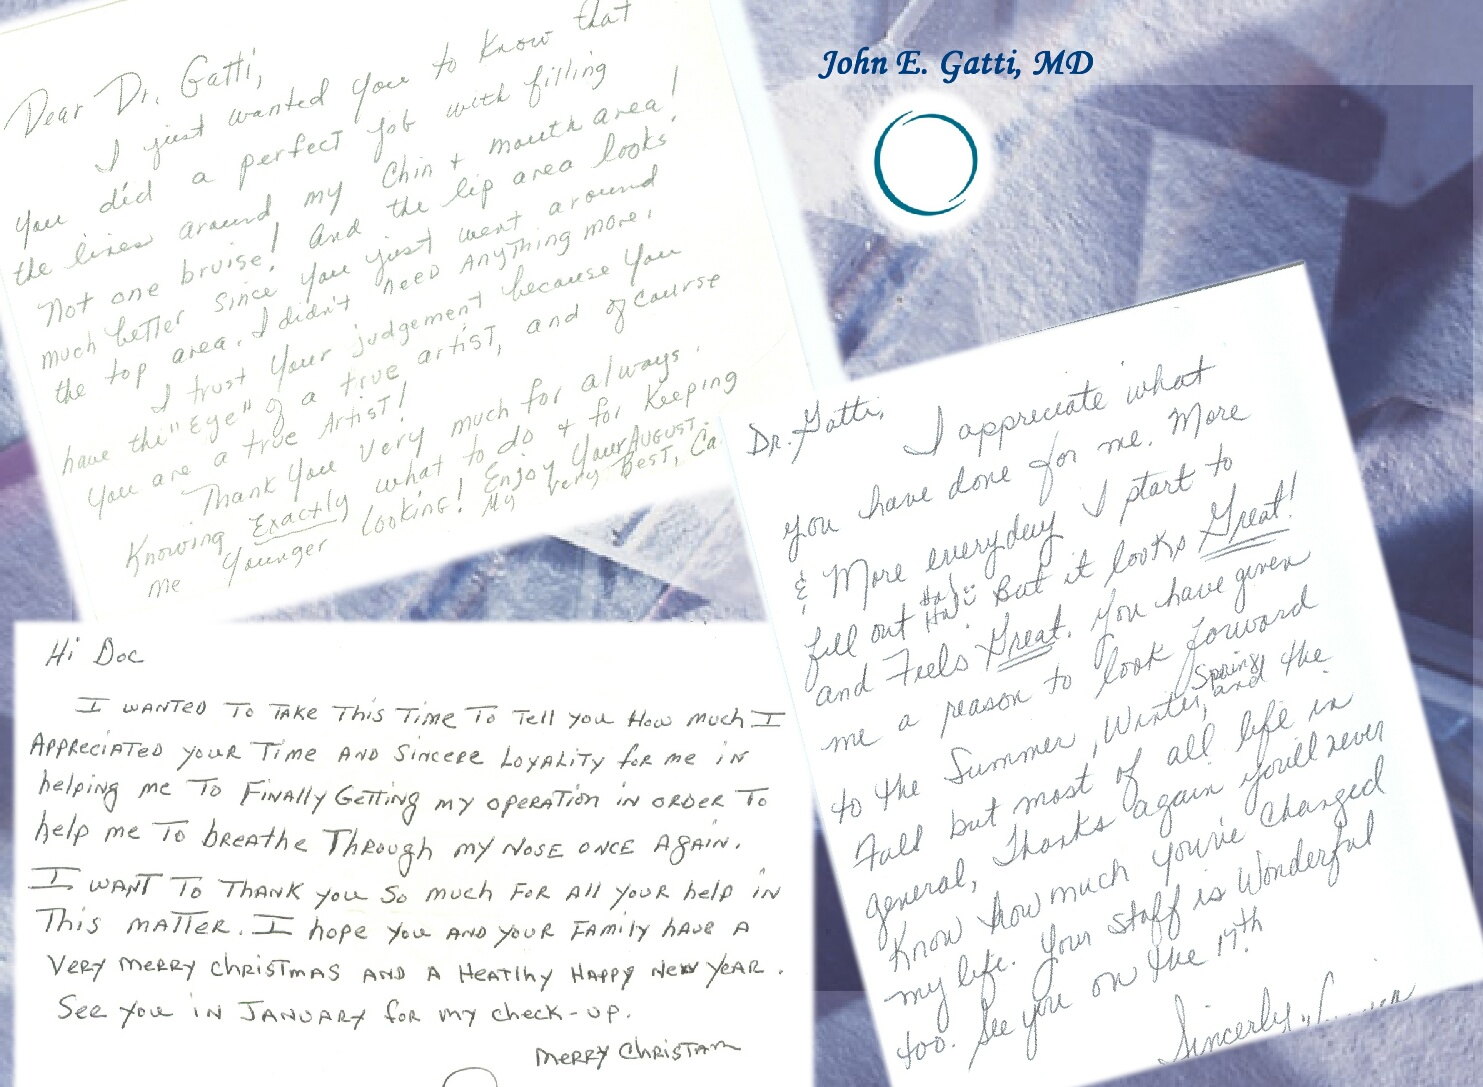 Dear Dr. Gatti,
I just wanted you to know that
you did a perfect job with filling
the lines around my chin + mouth area!
Not one bruise! And the lip area looks
much better since you just went around
the top area. I didn't need anything more.
I trust your judgement because you
have the "Eye" of a true artist, and of course
you are a true Artist!
Thank you very much for always
knowing Exactly what to do + for keeping
me younger looking! Enjoy your AUGUST.
My very Best, Ca
John E. Gatti, MD
Hi Doc
I WANTED TO TAKE This TIME TO Tell you How much I
APPRECIATED your TIME AND SINCERE LOYALITY for me in
helping me TO FINALLY GETTING my OPERATION IN ORDER TO
help me TO BREATHE THROUGH my NOSE ONCE AGAIN.
I WANT TO THANK you So much FOR All your help in
This MATTER. I hope you AND your FAMILY have A
VERY MERRY ChRISTMAS AND A HEATlhy HAPPY NEW YEAR.
See you in JANUARY for my check-up.
MERRY CHRISTAM
Dr. Gatti,
I appreciate what
you have done for me. More
& More everyday I start to
fill out Ha! Ha! But it looks Great!
and Feels Great. You have given
me a reason to look forward
to the Summer, Winter, Spring and the
Fall but most of all life in
general, Thanks again you'll never
Know how much you've changed
my life. Your Staff is Wonderful
too. See you on the 17th.
Sincerly,